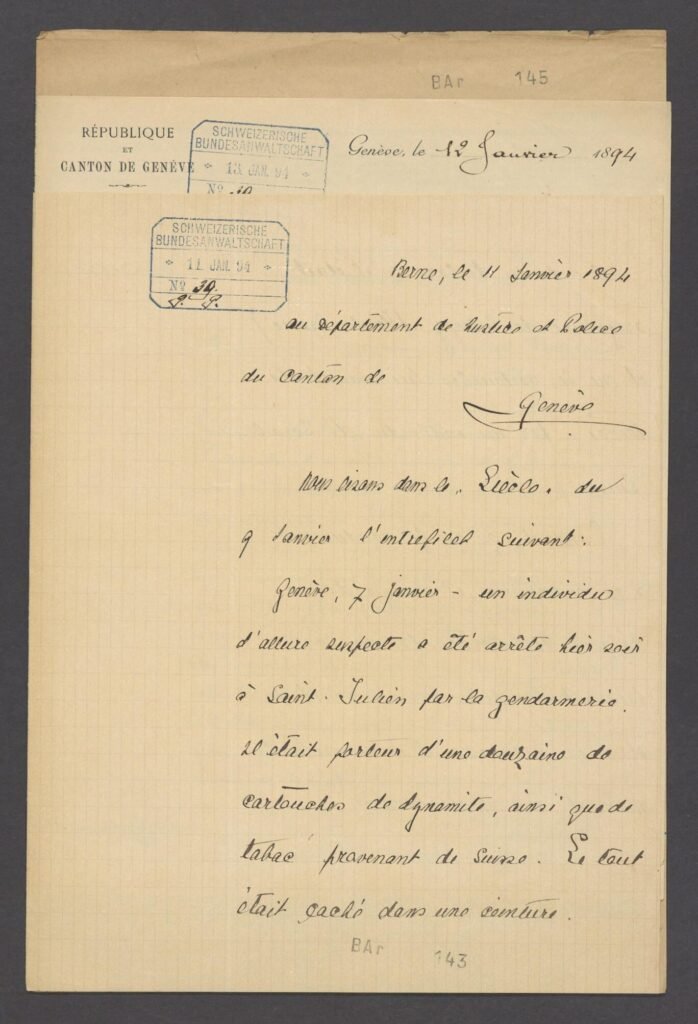 BAr 145
RÉPUBLIQUE
ET
CANTON DE GENÈVE
SCHWEIZERISCHE
BUNDESANWALTSCHAFT
JAN. 94
Nº
Genève, le 12 Janvier 1894
SCHWEIZERISCHE
BUNDESANWALTSCHAFT
11. JAN. 94
Nº 39.
P. P.
Berne, le 11 Janvier 1894
au Département de Justice et Police
du Canton de
Genève
Nous lisons dans le "Siècle" du
9 Janvier l'entrefilet suivant:
Genève, 7 janvier - un individu
d'allure suspecte a été arrêté hier soir
à Saint-Julien par la gendarmerie.
Il était porteur d'une douzaine de
cartouches de dynamite, ainsi que de
tabac provenant de Suisse. Le tout
était caché dans une ceinture.
BAr 143